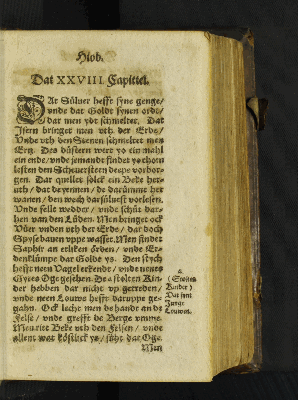 Hiob.
Dat XXVIII Capittel.
DAt Sülver hefft syne genge/
vnde dat Goldt synen ordt/
dar men ydt schmeltet. Dat
Isern bringet men vth der Erde/
Vnde vth den Steenen schmeltet men
Ertz. Des düstern wert yo ein mahl
ein ende/ vnde jemandt findet yo thom
lesten den
deepe vorbor-
gen. Dar quillet sölck ein Beke her-
vth/ dat de yennen/ de darümme her
wanen/ den wech darsüluest vorlesen.
Vnde fellt wedder/ vnde schüt dar-
hen van den Lüden. Men bringet ock
Vüer vnden vth der Erde/ dar doch
Spyse bauen vppe wasset. Men findet
Saphir an etliken örden/ vnde Er-
denklümpe dar Golde ys. Den stych
hefft neen Vagel erkendt/ vnde neues
Gyres Oge gesehen. De stolten Kin-
der hebben dar nicht vp getreden/
vnde neen Louwe hefft daruppe ge-
gahn. Ock lecht men de hande an de
Felse/ vnde grefft de Berge vmme.
Men ritt Beke vth den Felsen/ vnde
allent wat köstlick ys/ süht dat Oge.
Men
a.
( Stolten
Kinder )
Dat sint
Junge
Louwen.